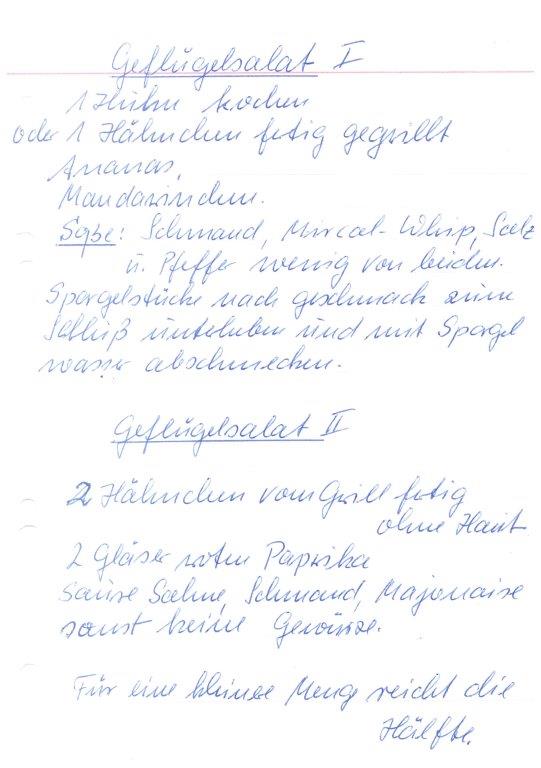 Geflügelsalat I
1 Huhn kochen
oder 1 Hähnchen fertig gegrillt
Ananas,
Mandarinchen.
Soße: Schmand, Miracel-Whip, Salz
u. Pfeffer wenig von beiden.
Spargelstücke nach geschmack zum
Schluß unterheben und mit Spargel
wasser abschmecken.
Geflügelsalat II
2 Hähnchen vom Grill fertig
ohne Haut
2 Gläser roten Paprika
Saure Sahne, Schmand, Majonaise
sonst keine Gewürze.
Für eine kleinee Menge reicht die
Hälfte.